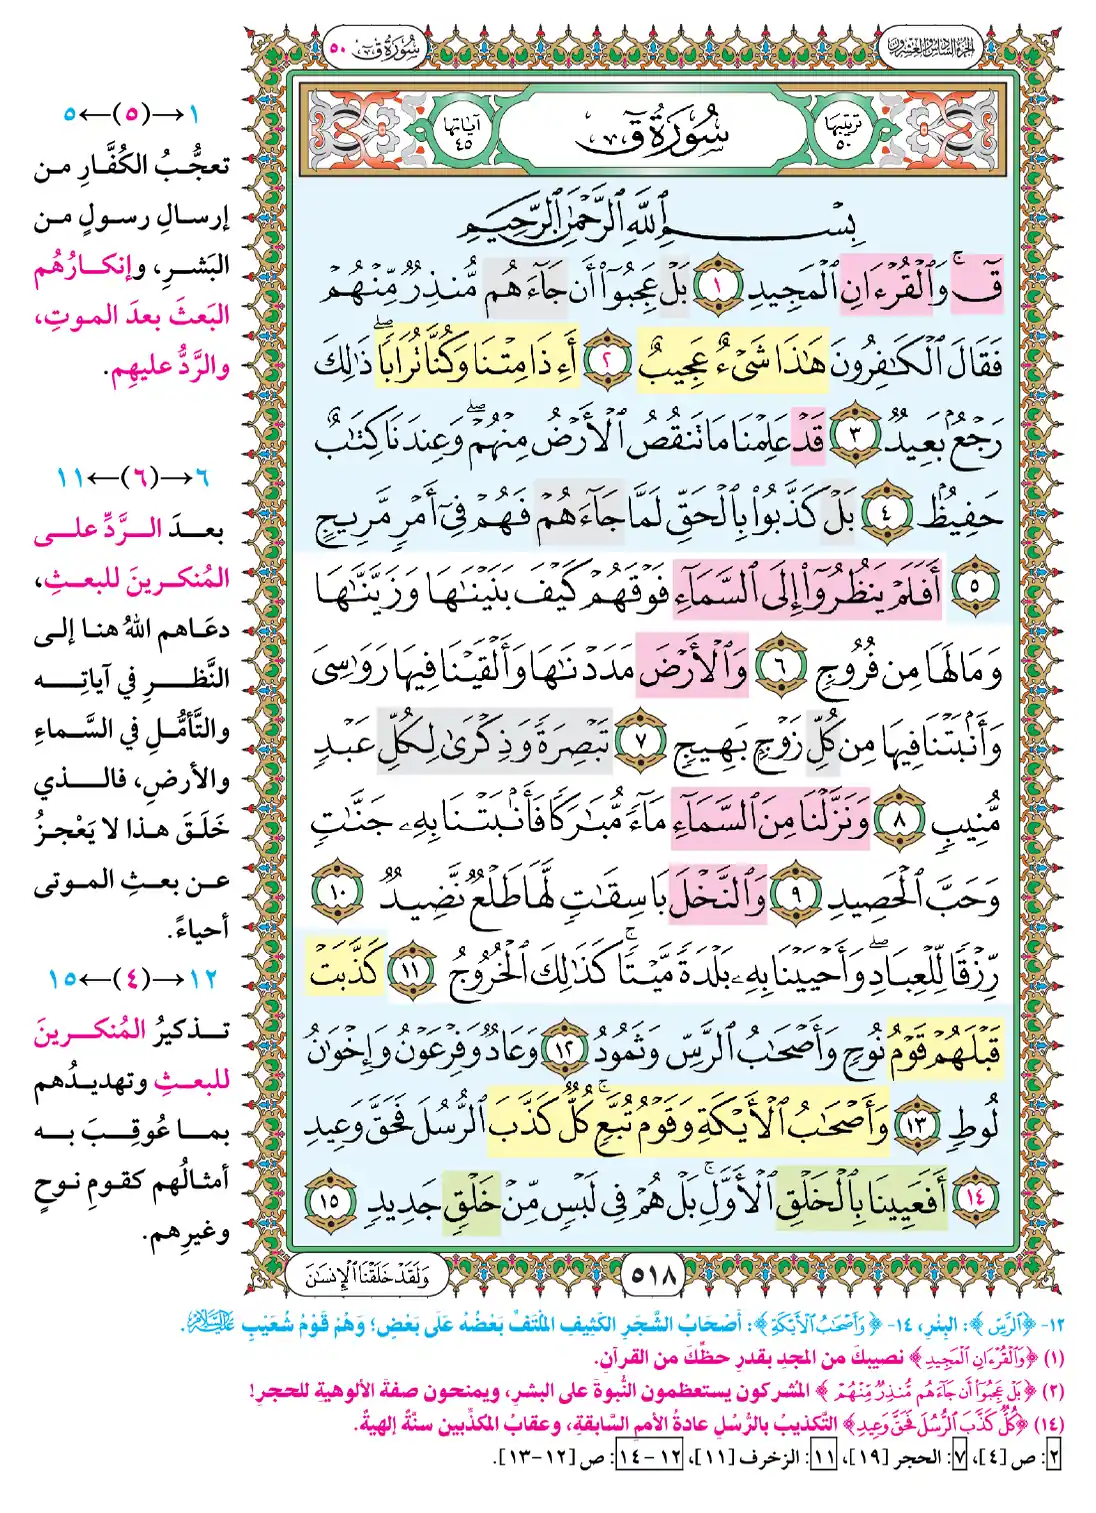 الجزء السادس والعشرون
سُورَةُ قٓ ٥٠
ترتيبها ٥٠
سُورَةُ قٓ
آياتها ٤٥
بِسْمِ ٱللَّهِ ٱلرَّحْمَٰنِ ٱلرَّحِيمِ
قٓۚ وَٱلْقُرْءَانِ ٱلْمَجِيدِ ١ بَلْ عَجِبُوٓا۟ أَن جَآءَهُم مُّنذِرٌ مِّنْهُمْ
فَقَالَ ٱلْكَٰفِرُونَ هَٰذَا شَىْءٌ عَجِيبٌ ٢ أَءِذَا مِتْنَا وَكُنَّا تُرَابًاۖ ذَٰلِكَ
رَجْعٌۢ بَعِيدٌ ٣ قَدْ عَلِمْنَا مَا تَنقُصُ ٱلْأَرْضُ مِنْهُمْۖ وَعِندَنَا كِتَٰبٌ
حَفِيظٌۢ ٤ بَلْ كَذَّبُوا۟ بِٱلْحَقِّ لَمَّا جَآءَهُمْ فَهُمْ فِىٓ أَمْرٍ مَّرِيجٍ
٥ أَفَلَمْ يَنظُرُوٓا۟ إِلَى ٱلسَّمَآءِ فَوْقَهُمْ كَيْفَ بَنَيْنَٰهَا وَزَيَّنَّٰهَا
وَمَا لَهَا مِن فُرُوجٍ ٦ وَٱلْأَرْضَ مَدَدْنَٰهَا وَأَلْقَيْنَا فِيهَا رَوَٰسِىَ
وَأَنۢبَتْنَا فِيهَا مِن كُلِّ زَوْجٍۭ بَهِيجٍ ٧ تَبْصِرَةً وَذِكْرَىٰ لِكُلِّ عَبْدٍ
مُّنِيبٍ ٨ وَنَزَّلْنَا مِنَ ٱلسَّمَآءِ مَآءً مُّبَٰرَكًا فَأَنۢبَتْنَا بِهِۦ جَنَّٰتٍ
وَحَبَّ ٱلْحَصِيدِ ٩ وَٱلنَّخْلَ بَاسِقَٰتٍ لَّهَا طَلْعٌ نَّضِيدٌ ١٠
رِّزْقًا لِّلْعِبَادِۖ وَأَحْيَيْنَا بِهِۦ بَلْدَةً مَّيْتًاۚ كَذَٰلِكَ ٱلْخُرُوجُ ١١ كَذَّبَتْ
قَبْلَهُمْ قَوْمُ نُوحٍ وَأَصْحَٰبُ ٱلرَّسِّ وَثَمُودُ ١٢ وَعَادٌ وَفِرْعَوْنُ وَإِخْوَٰنُ
لُوطٍ ١٣ وَأَصْحَٰبُ ٱلْأَيْكَةِ وَقَوْمُ تُبَّعٍۚ كُلٌّ كَذَّبَ ٱلرُّسُلَ فَحَقَّ وَعِيدِ
١٤ أَفَعَيِينَا بِٱلْخَلْقِ ٱلْأَوَّلِۚ بَلْ هُمْ فِى لَبْسٍ مِّنْ خَلْقٍ جَدِيدٍ ١٥
وَلَقَدْ خَلَقْنَا ٱلْإِنسَٰنَ
٥١٨
١→(٥)←٥
تعجُّبُ الكُفَّارِ من
إرسالِ رسولٍ من
البَشرِ، وإنكارُهُم
البَعثَ بعدَ الموتِ،
والرَّدُّ عليهِم.
٦→(٦)←١١
بعدَ الرَّدِّ على
المُنكرينَ للبعثِ،
دعَاهم اللهُ هنا إلى
النَّظرِ في آياتِه
والتَّأمُّلِ في السَّماءِ
والأرضِ، فالذي
خَلَقَ هذا لا يَعْجزُ
عن بعثِ الموتى
أحياءً.
١٢→(٤)←١٥
تذكيرُ المُنكرينَ
للبعثِ وتهديدُهم
بما عُوقِبَ به
أمثالُهم كقومِ نوحٍ
وغيرِهم.
١٢- ﴿ٱلرَّسِّ﴾: البِئْرِ، ١٤- ﴿وَأَصْحَٰبُ ٱلْأَيْكَةِ﴾: أَصْحَابُ الشَّجَرِ الكَثِيفِ المُلْتَفِّ بَعْضُهُ عَلَى بَعْضٍ؛ وَهُمْ قَوْمُ شُعَيْبٍ عليه السلام.
(١) ﴿وَٱلْقُرْءَانِ ٱلْمَجِيدِ﴾ نصيبكَ من المجدِ بقدرِ حظِّكَ من القرآنِ.
(٢) ﴿بَلْ عَجِبُوٓا۟ أَن جَآءَهُم مُّنذِرٌ مِّنْهُمْ﴾ المُشركون يستعظمون النُّبوةَ على البشرِ، ويمنحون صفةَ الألوهيةِ للحجرِ!
(١٤) ﴿كُلٌّ كَذَّبَ ٱلرُّسُلَ فَحَقَّ وَعِيدِ﴾ التَّكذيبُ بالرُّسُلِ عادةُ الأممِ السَّابقةِ، وعقابُ المكذِّبين سنَّةٌ إلهيةٌ.
٢: ص [٤]، ٧: الحجر [١٩]، ١١: الزخرف [١١]، ١٢-١٤: ص [١٢-١٣].